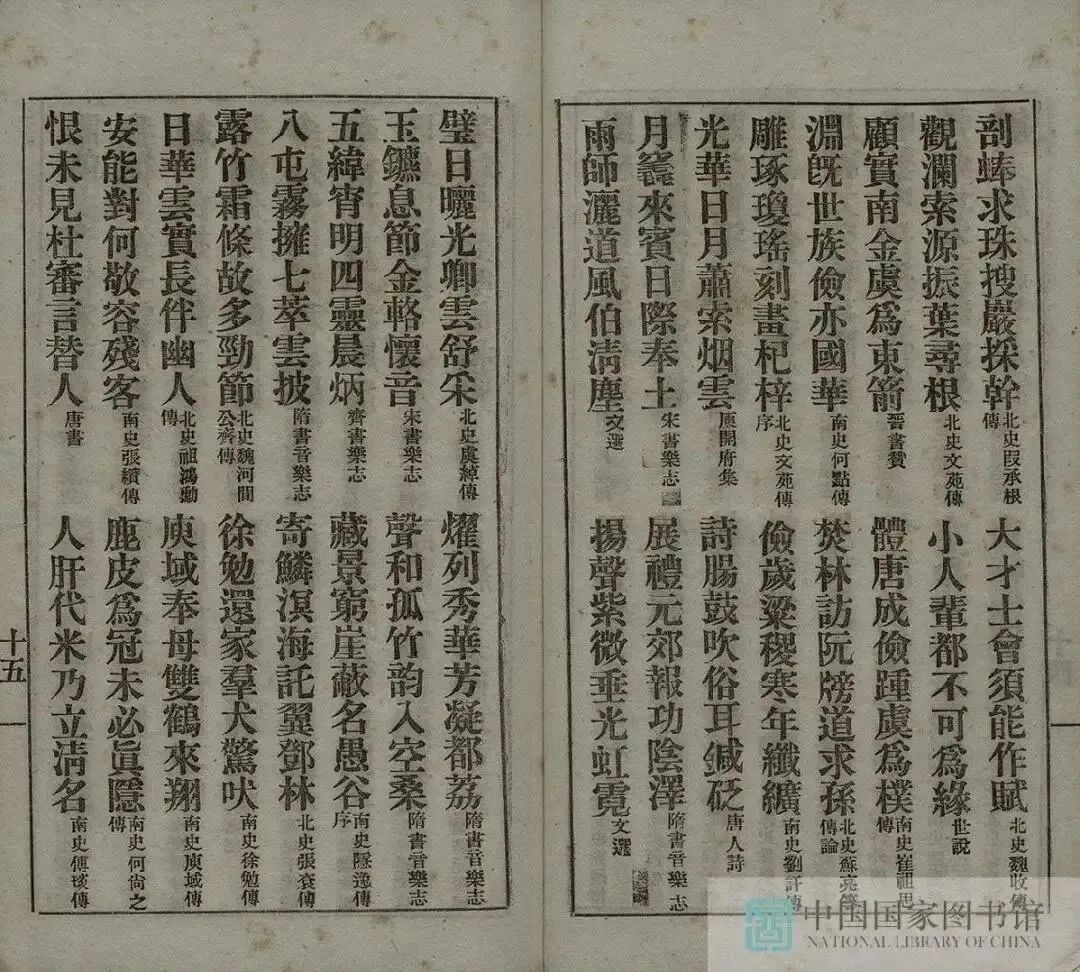 剖蜯求珠搜巖採幹 北史叚承根傳 大才士會須能作賦 北史魏收傳
觀瀾索源振葉尋根 北史文苑傳 小人輩都不可為緣 世說
顧實南金虞爲東箭 晉書贊 體唐成儉踵虞爲樸 南史崔祖思傳
淵旣世族儉亦國華 南史何點傳 焚林訪阮牓道求孫 北史蘇亮等傳論
雕琢瓊瑤刻畫杞梓 北史文苑傳序 儉歲粱稷寒年纖纊 南史劉訏傳
光華日月蕭索烟雲 庾開府集 詩腸鼓吹俗耳鍼砭 唐人詩
月竁來賓日際奉土 宋書樂志 展禮元郊報功陰澤 隋書音樂志
雨師灑道風伯淸塵 文選 揚聲紫微垂光虹霓 文選
璧日曬光卿雲舒采 北史虞綽傳 燿列秀華芳凝都荔 隋書音樂志
玉鑣息節金輅懷音 宋書樂志 聲和孤竹韵入空桑 隋書音樂志
五緯宵明四靈晨炳 齊書樂志 藏景窮崖蔽名愚谷 南史隱逸傳序
八屯霧擁七萃雲披 隋書音樂志 寄鱗溟海託翼鄧林 北史張袞傳
露竹霜條故多勁節 北史魏河間公齊傳 徐勉還家羣犬驚吠 南史徐勉傳
日華雲實長伴幽人 北史祖鴻勳傳 庾域奉母雙鶴來翔 南史庾域傳
安能對何敬容殘客 南史張纘傳 鹿皮爲冠未必眞隱 南史何尙之傳
恨未見杜審言替人 唐書 人肝代米乃立淸名 南史傅琰傳
十五
中国国家图书馆
NATIONAL LIBRARY OF CHINA